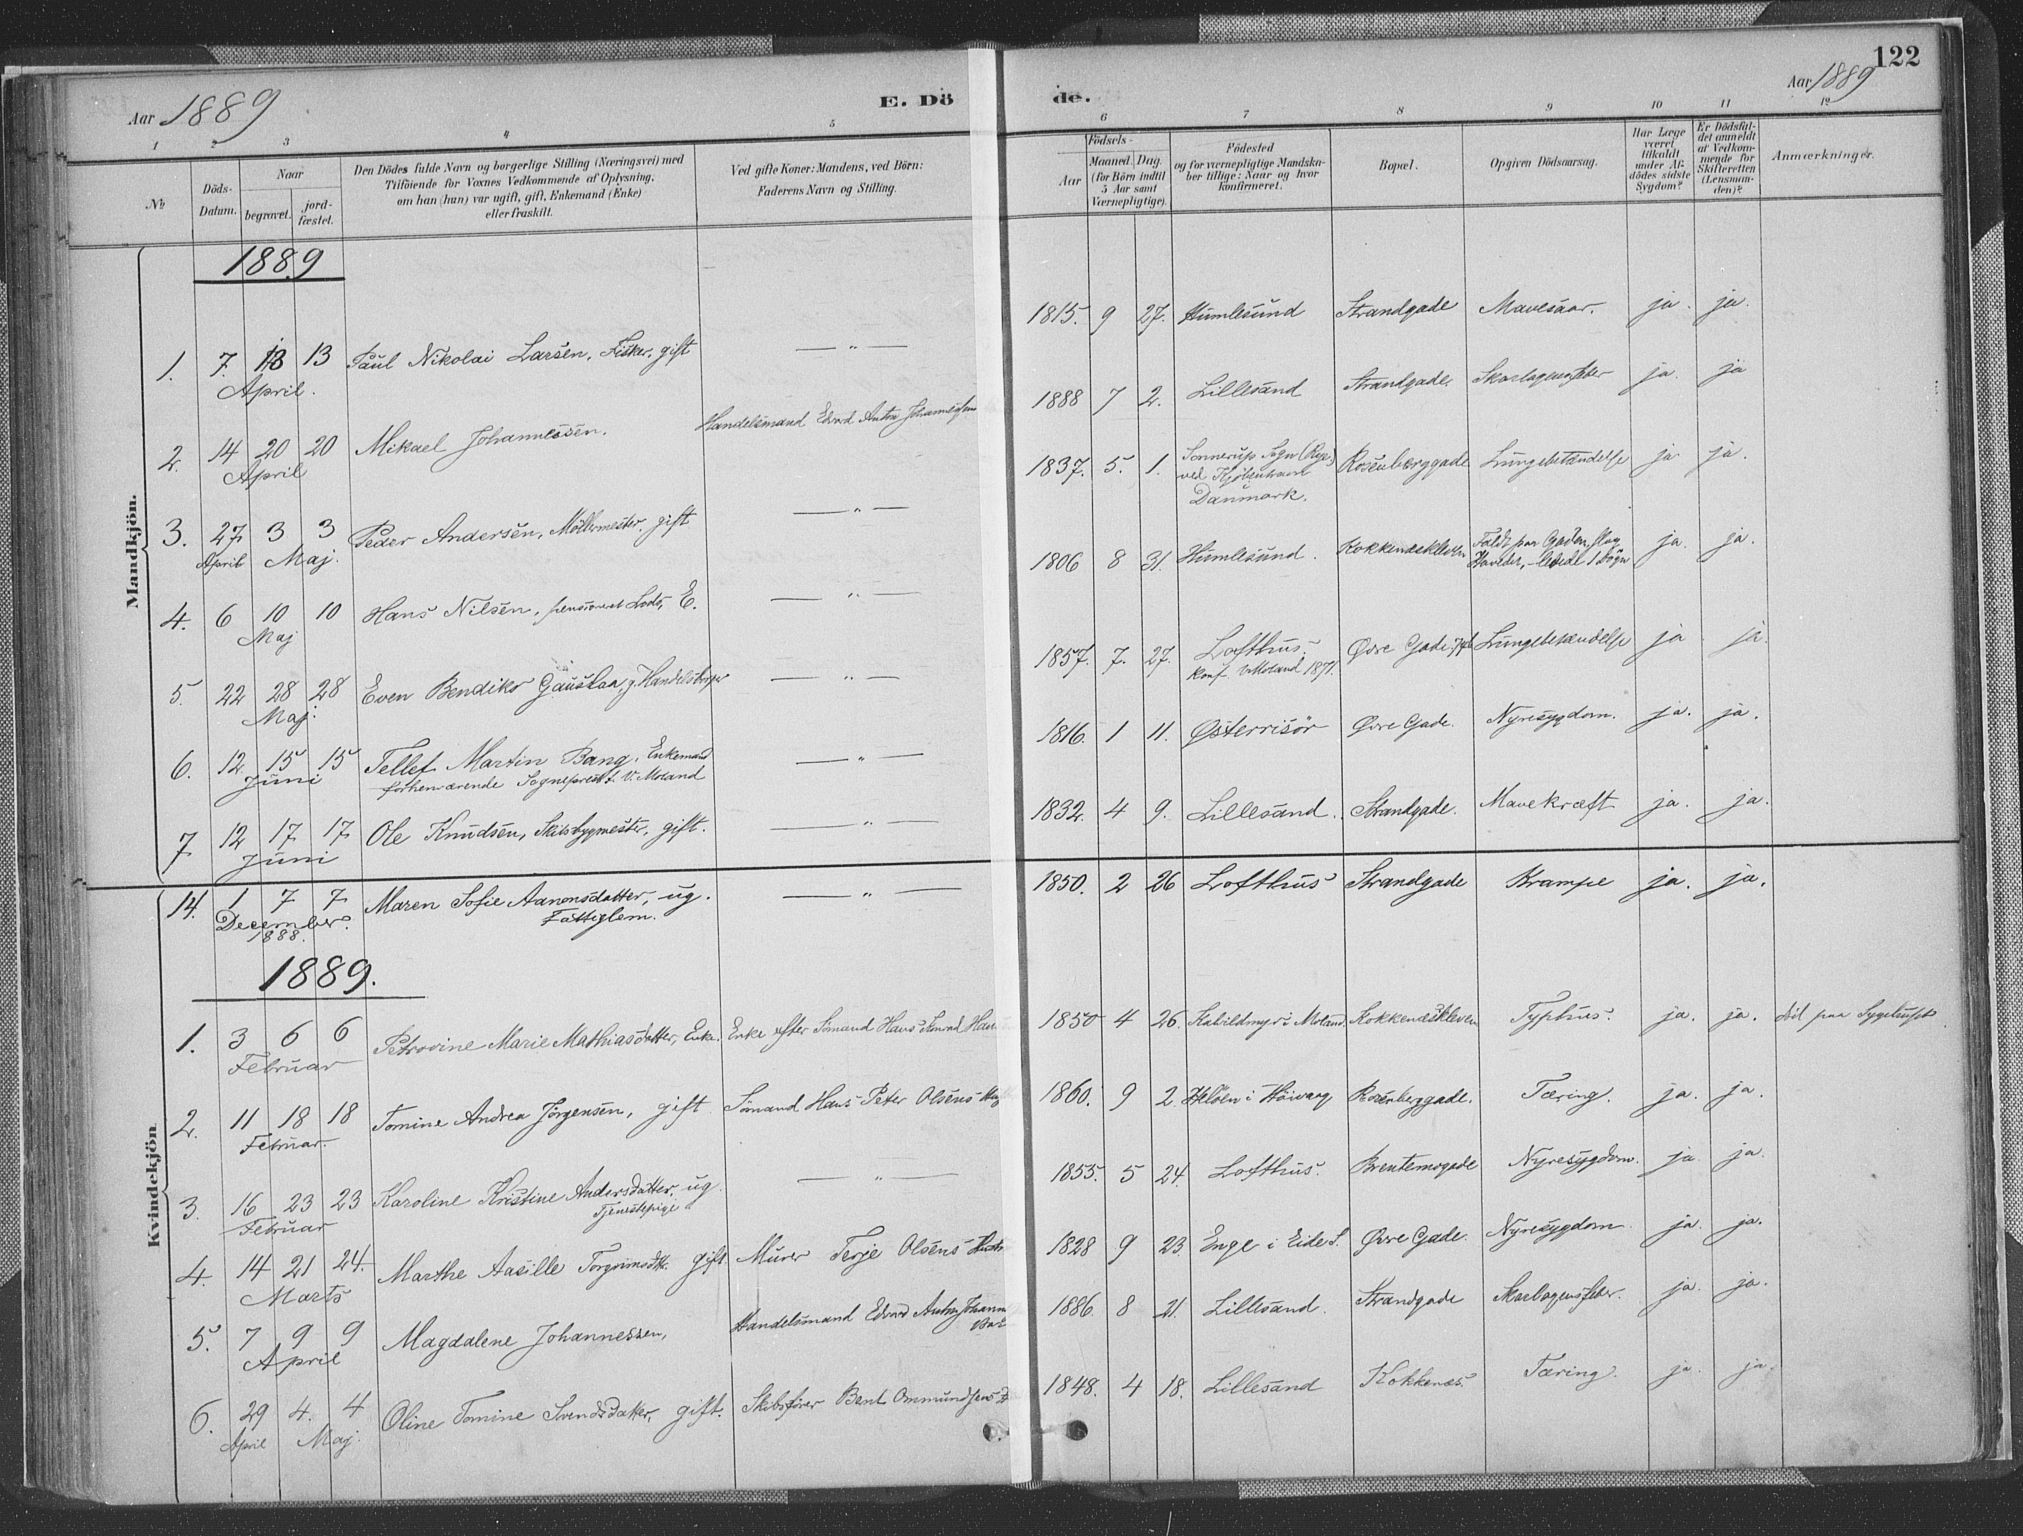 122
Aar 1889
E. Dö
de.
Aar 1889
1 2 3 4 5 6 7 8 9 10 11 12
№
Döds-Datum.
Naar
begravet.
jord-fæstet.
Den Dödes fulde Navn og borgerlige Stilling (Næringsvei) med
Tilföiende for Voxnes Vedkommende af Oplysning,
om han (hun) var ugift, gift, Enkemand (Enke)
eller fraskilt.
Ved gifte Koner: Mandens, ved Börn:
Faderens Navn og Stilling.
Födsels-
Aar
Maaned. Dag.
(for Börn indtil
5 Aar samt
Værnepligtige).
Födested
og for værnepligtige Mandska-
ber tillige: Naar og hvor
konfirmeret.
Bopæl.
Opgiven Dödsaarsag.
Har Læge
været
tilkaldt
under Af-
dödes sidste
Sygdom?
Er Dödsfal-
det anmeldt
af Vedkom-
mende for
Skifteretten
(Lensman-
den)?
Anmærkninger.
Mandkjön.
1889
1. 7. 13 13 Paul Nikolai Larsen, Fisker, gift — " — 1815. 9 27. Humlesund Strandgade Mavesaar. ja. ja.
April.
2. 14 20 20 Mikael Johannessen. Handelsmand Edvard Anton Johannessen 1888 7 2. Lillesand Strandgade Skarlagensfeber ja. ja
April
3. 27 3 3 Peder Andersen, Möllermester, gift — " — 1837. 5. 1. Sonnerup Sogn Rosenberggade Lungebetændelse ja ja.
April Maj. ved Kjöbenhavn
Danmark.
4. 6 10 10 Hans Nilsen, pensioneret Lods, E. — " — 1806 8 31. Humlesund. Kokkenæskleven Faldt paa Gaden, slog ja. ja.
Maj Hovedet, levede 1 Dögn
5. 22 28 28 Even Bendiks Gauslaa, g. Handelsborger — " — 1857. 7. 27. Lofthus. Övre Gade Lungebetændelse ja ja.
Maj. Konf. V. Moland 1871.
6. 12 15 15 Tellef Martin Bang, Enkemand — " — 1816. 1 11. Østerrisör Øvre Gade. Nyresygdom. ja. ja.
Juni forhenværende Sogneprest t. V. Moland
7 12 17 17 Ole Knudsen, Skibsbygmester, gift. — " — 1832. 4 9. Lillesand. Strandgade. Mavekræft ja. ja.
Juni
Kvindekjön
14. 1 7 7 Maren Sofie Aanonsdatter, ug. — " — 1850. 2 26 Lofthus Strandgade Krampe ja. ja.
December. Fattiglem.
1888.
1889.
1. 3 6 6 Petrovine Marie Mathiasdatter, Enke. Enke efter Sömand Hans 1850 4 26. Kabildmyr i Moland Kokkenæskleven Typhus. ja. ja. död paa Sygehuset
Februar
2. 11 18 18 Tomine Andrea Jörgensen, gift Sömand Hans Peter Olsens 1860. 9 2. i Höivaag Rosenberggade. Tæring. ja. ja.
Februar.
3. 16 23 23 Karoline Kristine Andersdatter, ug. — " — 1855. 5 24. Lofthus. Brentemogade Nyresygdom. ja. ja.
Februar Tjenestepige
4. 14 21 24. Marthe Aasille Torgrimsdtr. gift Murer Terje Olsens 1828 9 23. Enge i Eide S. Øvre Gade. Nyresygdom ja. ja.
Marts
5. 7 9 9 Magdalene Johannessen, Handelsmand Edvard Anton 1886. 8 21. Lillesand. Strandgade Skarlagensfeber. ja. ja.
April
6. 29 4. 4 Oline Tomine Svendsdatter, gift. Skibsförer Bent Ommundsens 1848. 4 18. Lillesand Kokkenæs. Tæring. ja. ja.
April Maj.